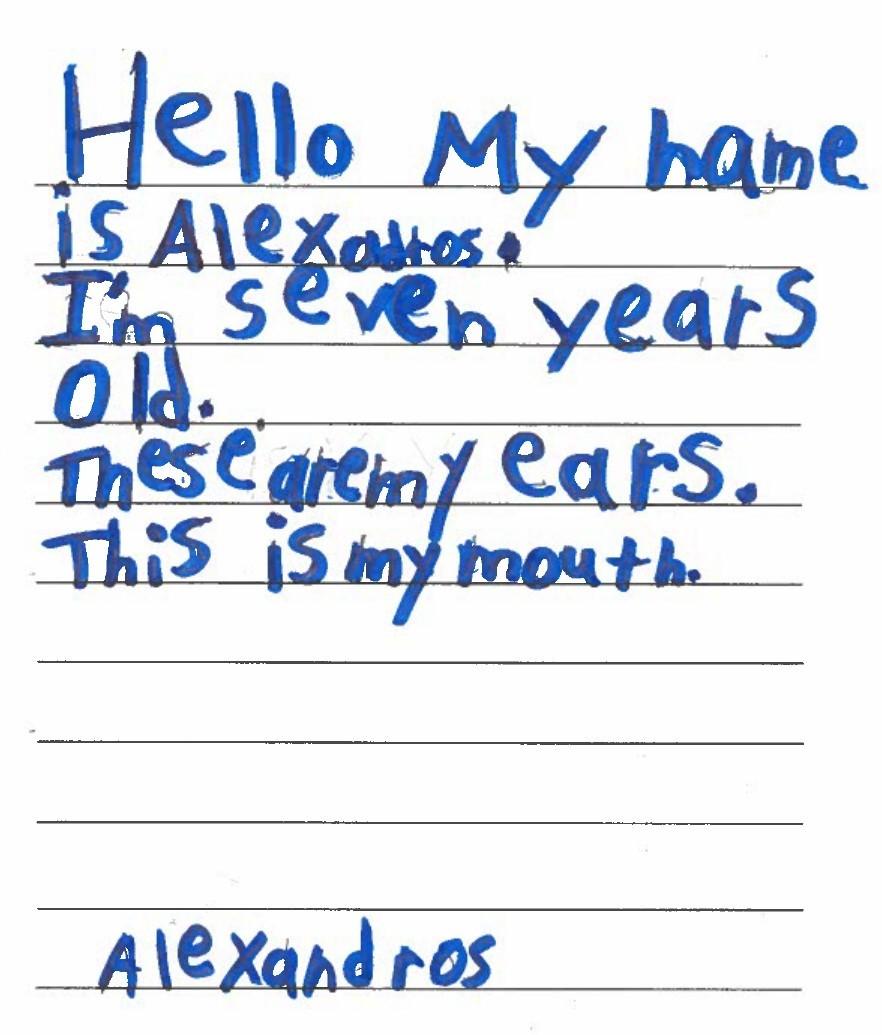 Hello My name
is Alexadros.
I'm seven years
old.
These are my ears.
This is my mouth.
Alexandros